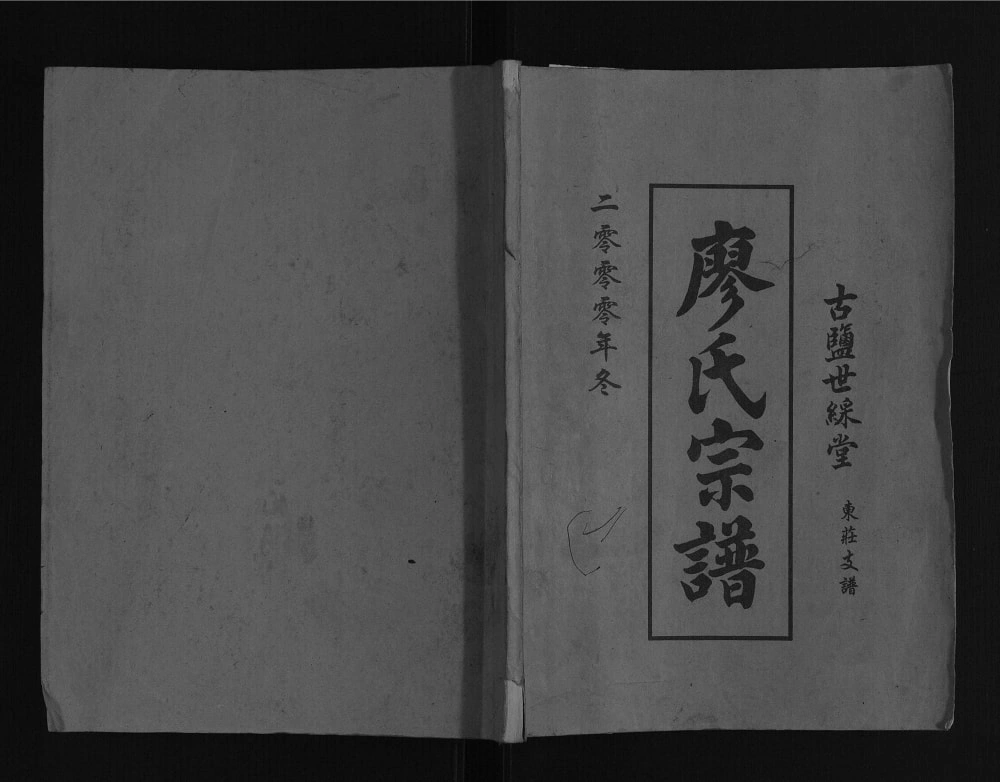 古鹽世綵堂
東莊支譜
廖氏宗譜
二零零零年冬